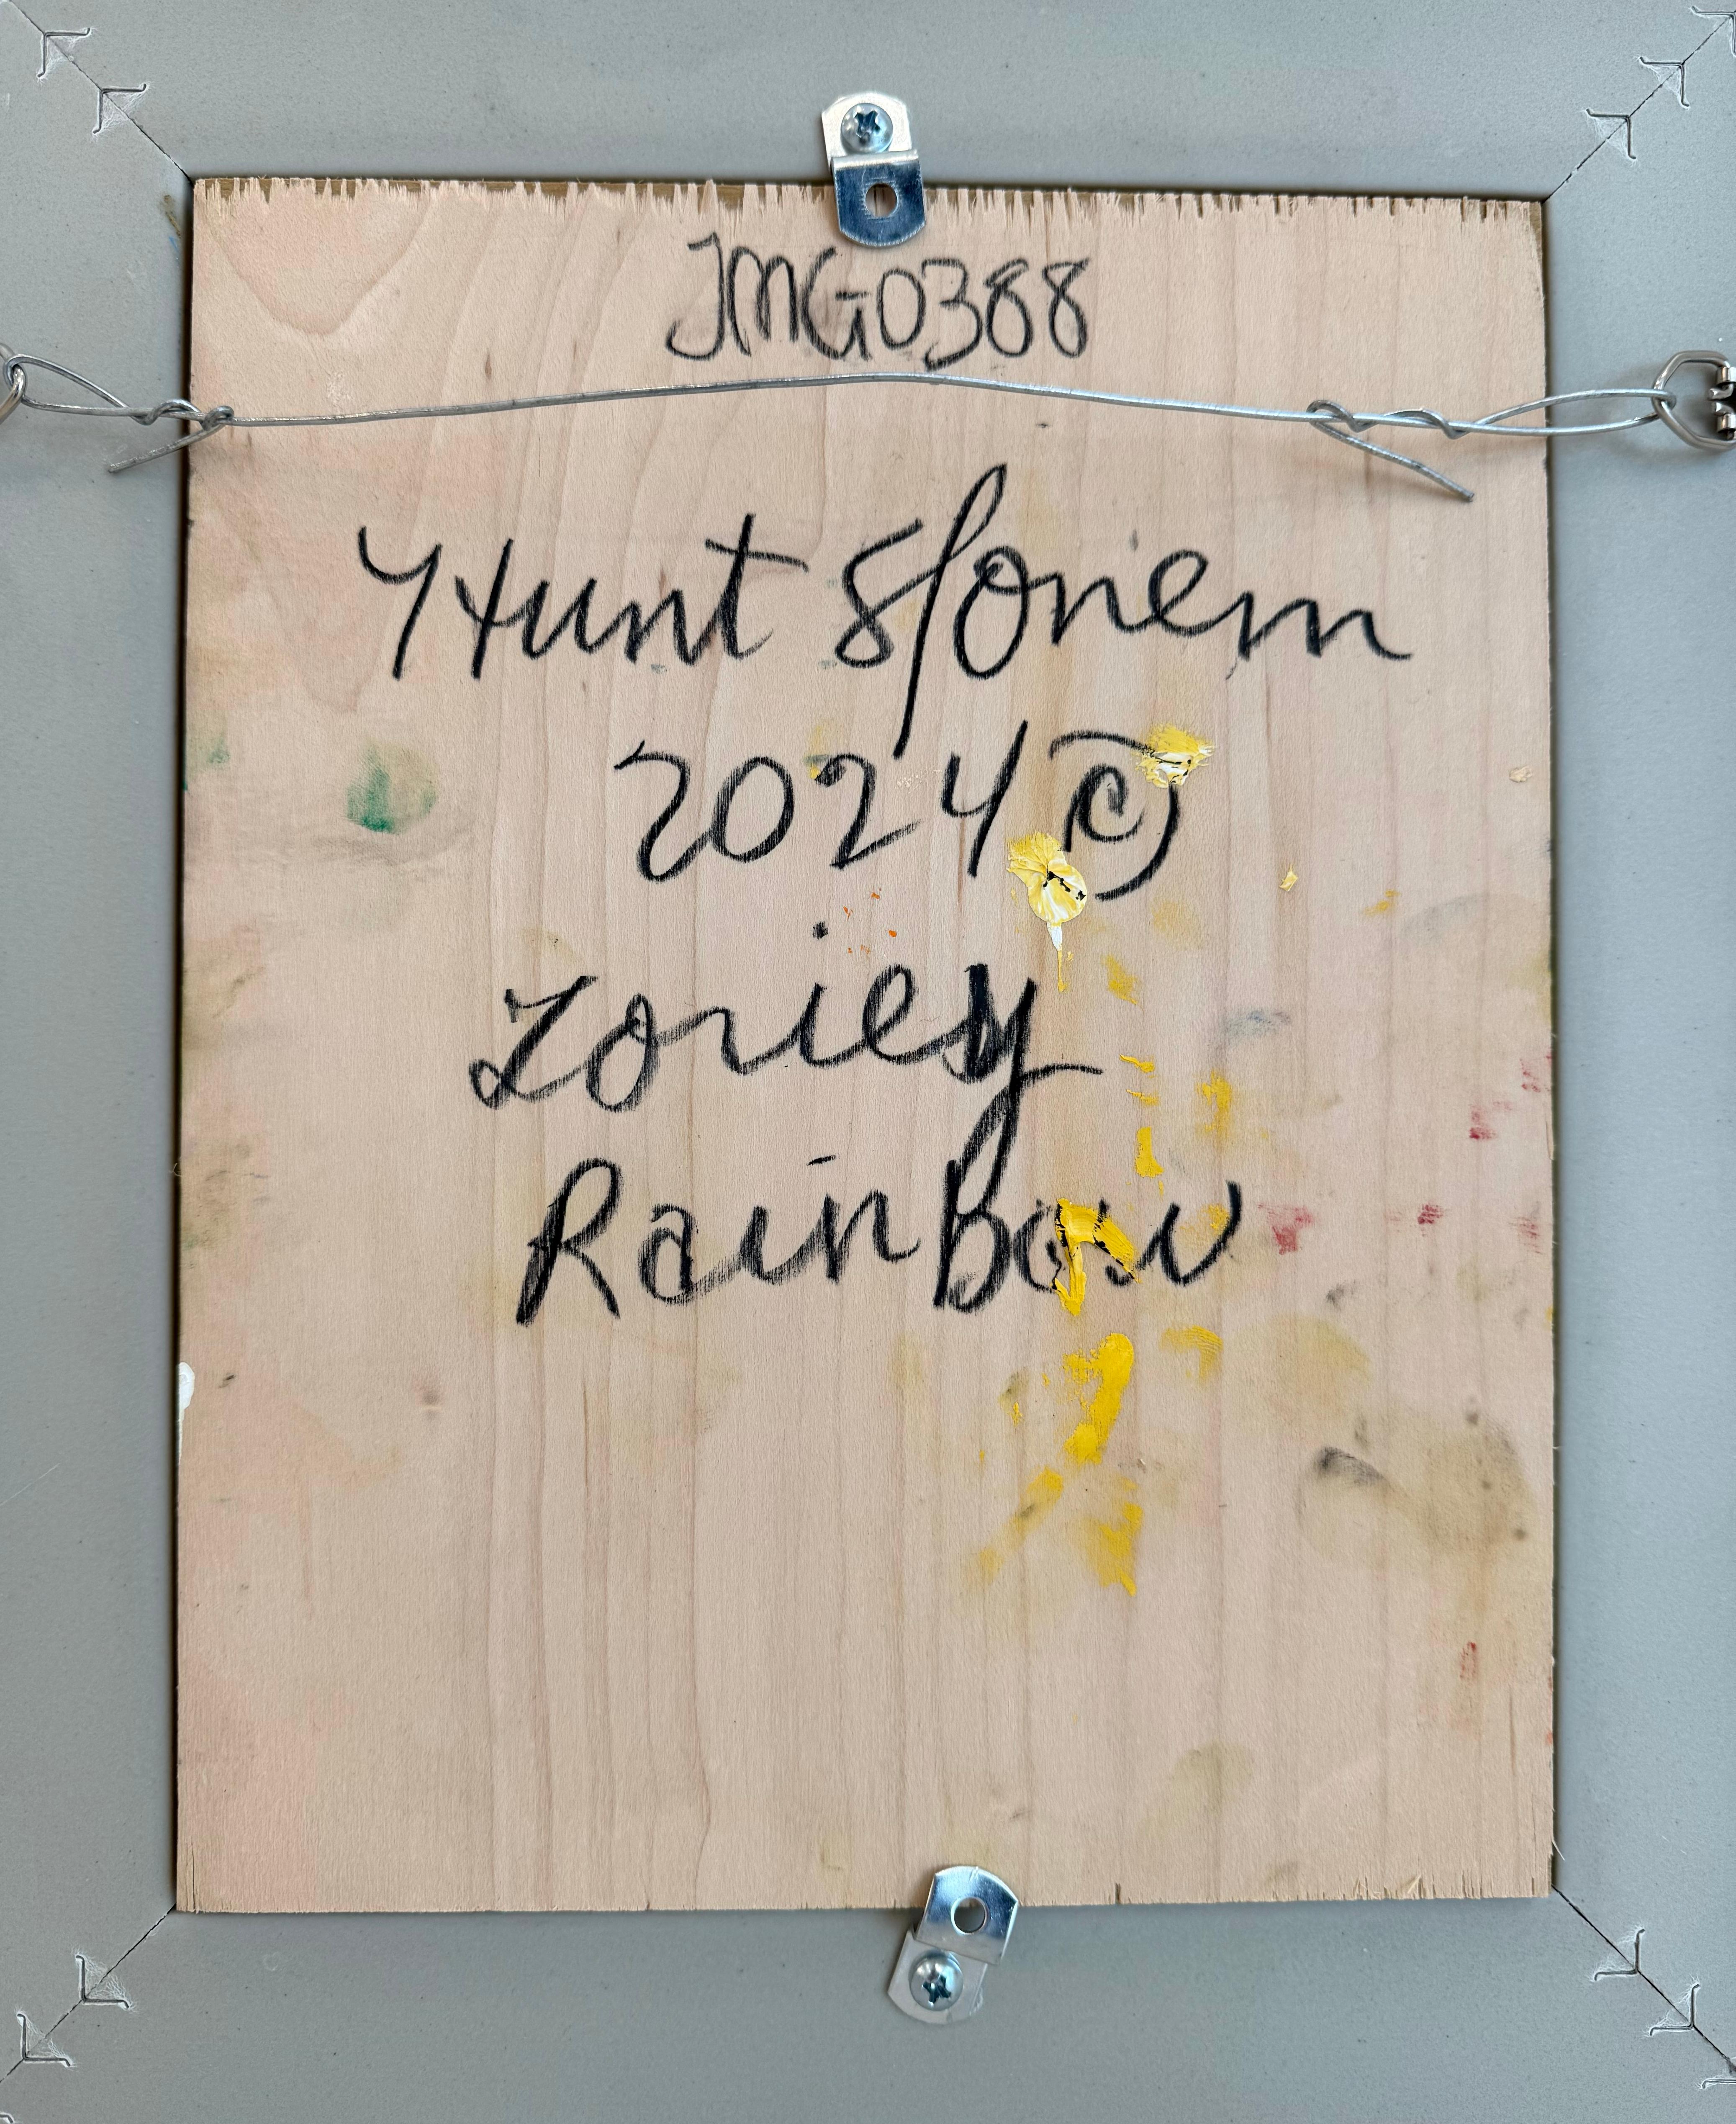 JMG0388
Hunt Slonem
2024 ©
Loriey
RainBow